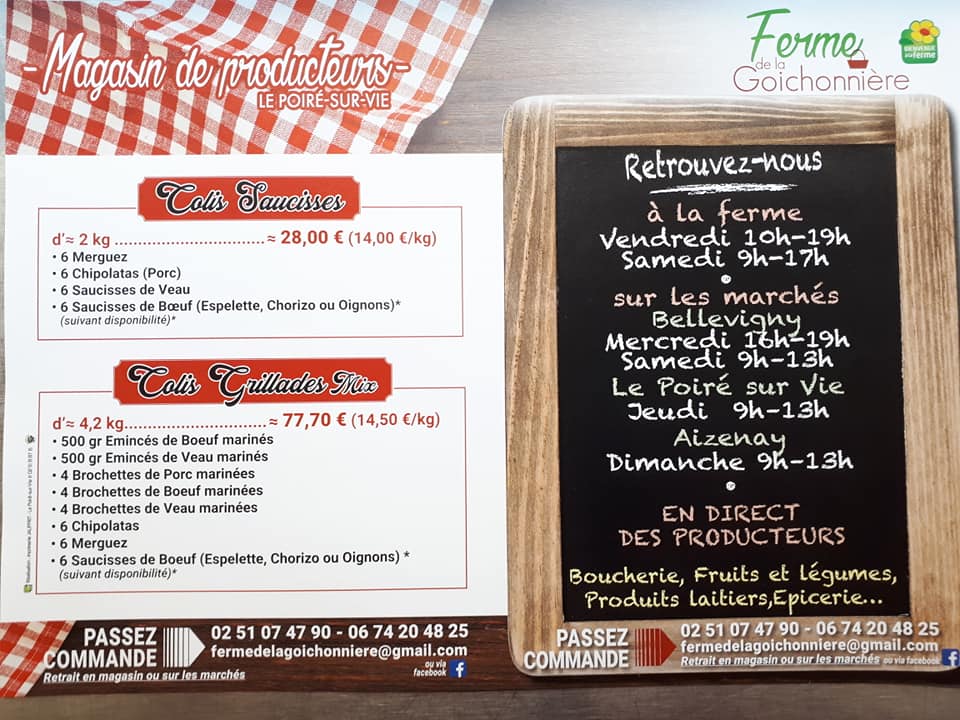 - Magasin de producteurs -
LE POIRÉ-SUR-VIE
Colis Saucisses
d'≈ 2 kg ..............................≈ 28,00 € (14,00 €/kg)
• 6 Merguez
• 6 Chipolatas (Porc)
• 6 Saucisses de Veau
• 6 Saucisses de Bœuf (Espelette, Chorizo ou Oignons)*
(suivant disponibilité)*
Colis Grillades Mix
d'≈ 4,2 kg.............................≈ 77,70 € (14,50 €/kg)
• 500 gr Emincés de Boeuf marinés
• 500 gr Emincés de Veau marinés
• 4 Brochettes de Porc marinées
• 4 Brochettes de Boeuf marinées
• 4 Brochettes de Veau marinées
• 6 Chipolatas
• 6 Merguez
• 6 Saucisses de Boeuf (Espelette, Chorizo ou Oignons) *
(suivant disponibilité)*
PASSEZ
COMMANDE
02 51 07 47 90 - 06 74 20 48 25
fermedelagoichonniere@gmail.com
Retrait en magasin ou sur les marchés
ou via
facebook
Ferme
de la
Goichonnière
BIENVENUE
à la ferme
Retrouvez-nous
à la ferme
Vendredi 10h-19h
Samedi 9h-17h
sur les marchés
Bellevigny
Mercredi 16h-19h
Samedi 9h-13h
Le Poiré sur Vie
Jeudi 9h-13h
Aizenay
Dimanche 9h-13h
EN DIRECT
DES PRODUCTEURS
Boucherie, Fruits et légumes,
Produits laitiers,Epicerie...
PASSEZ
COMMANDE
02 51 07 47 90 - 06 74 20 48 25
fermedelagoichonniere@gmail.com
Retrait en magasin ou sur les marchés ou via facebook